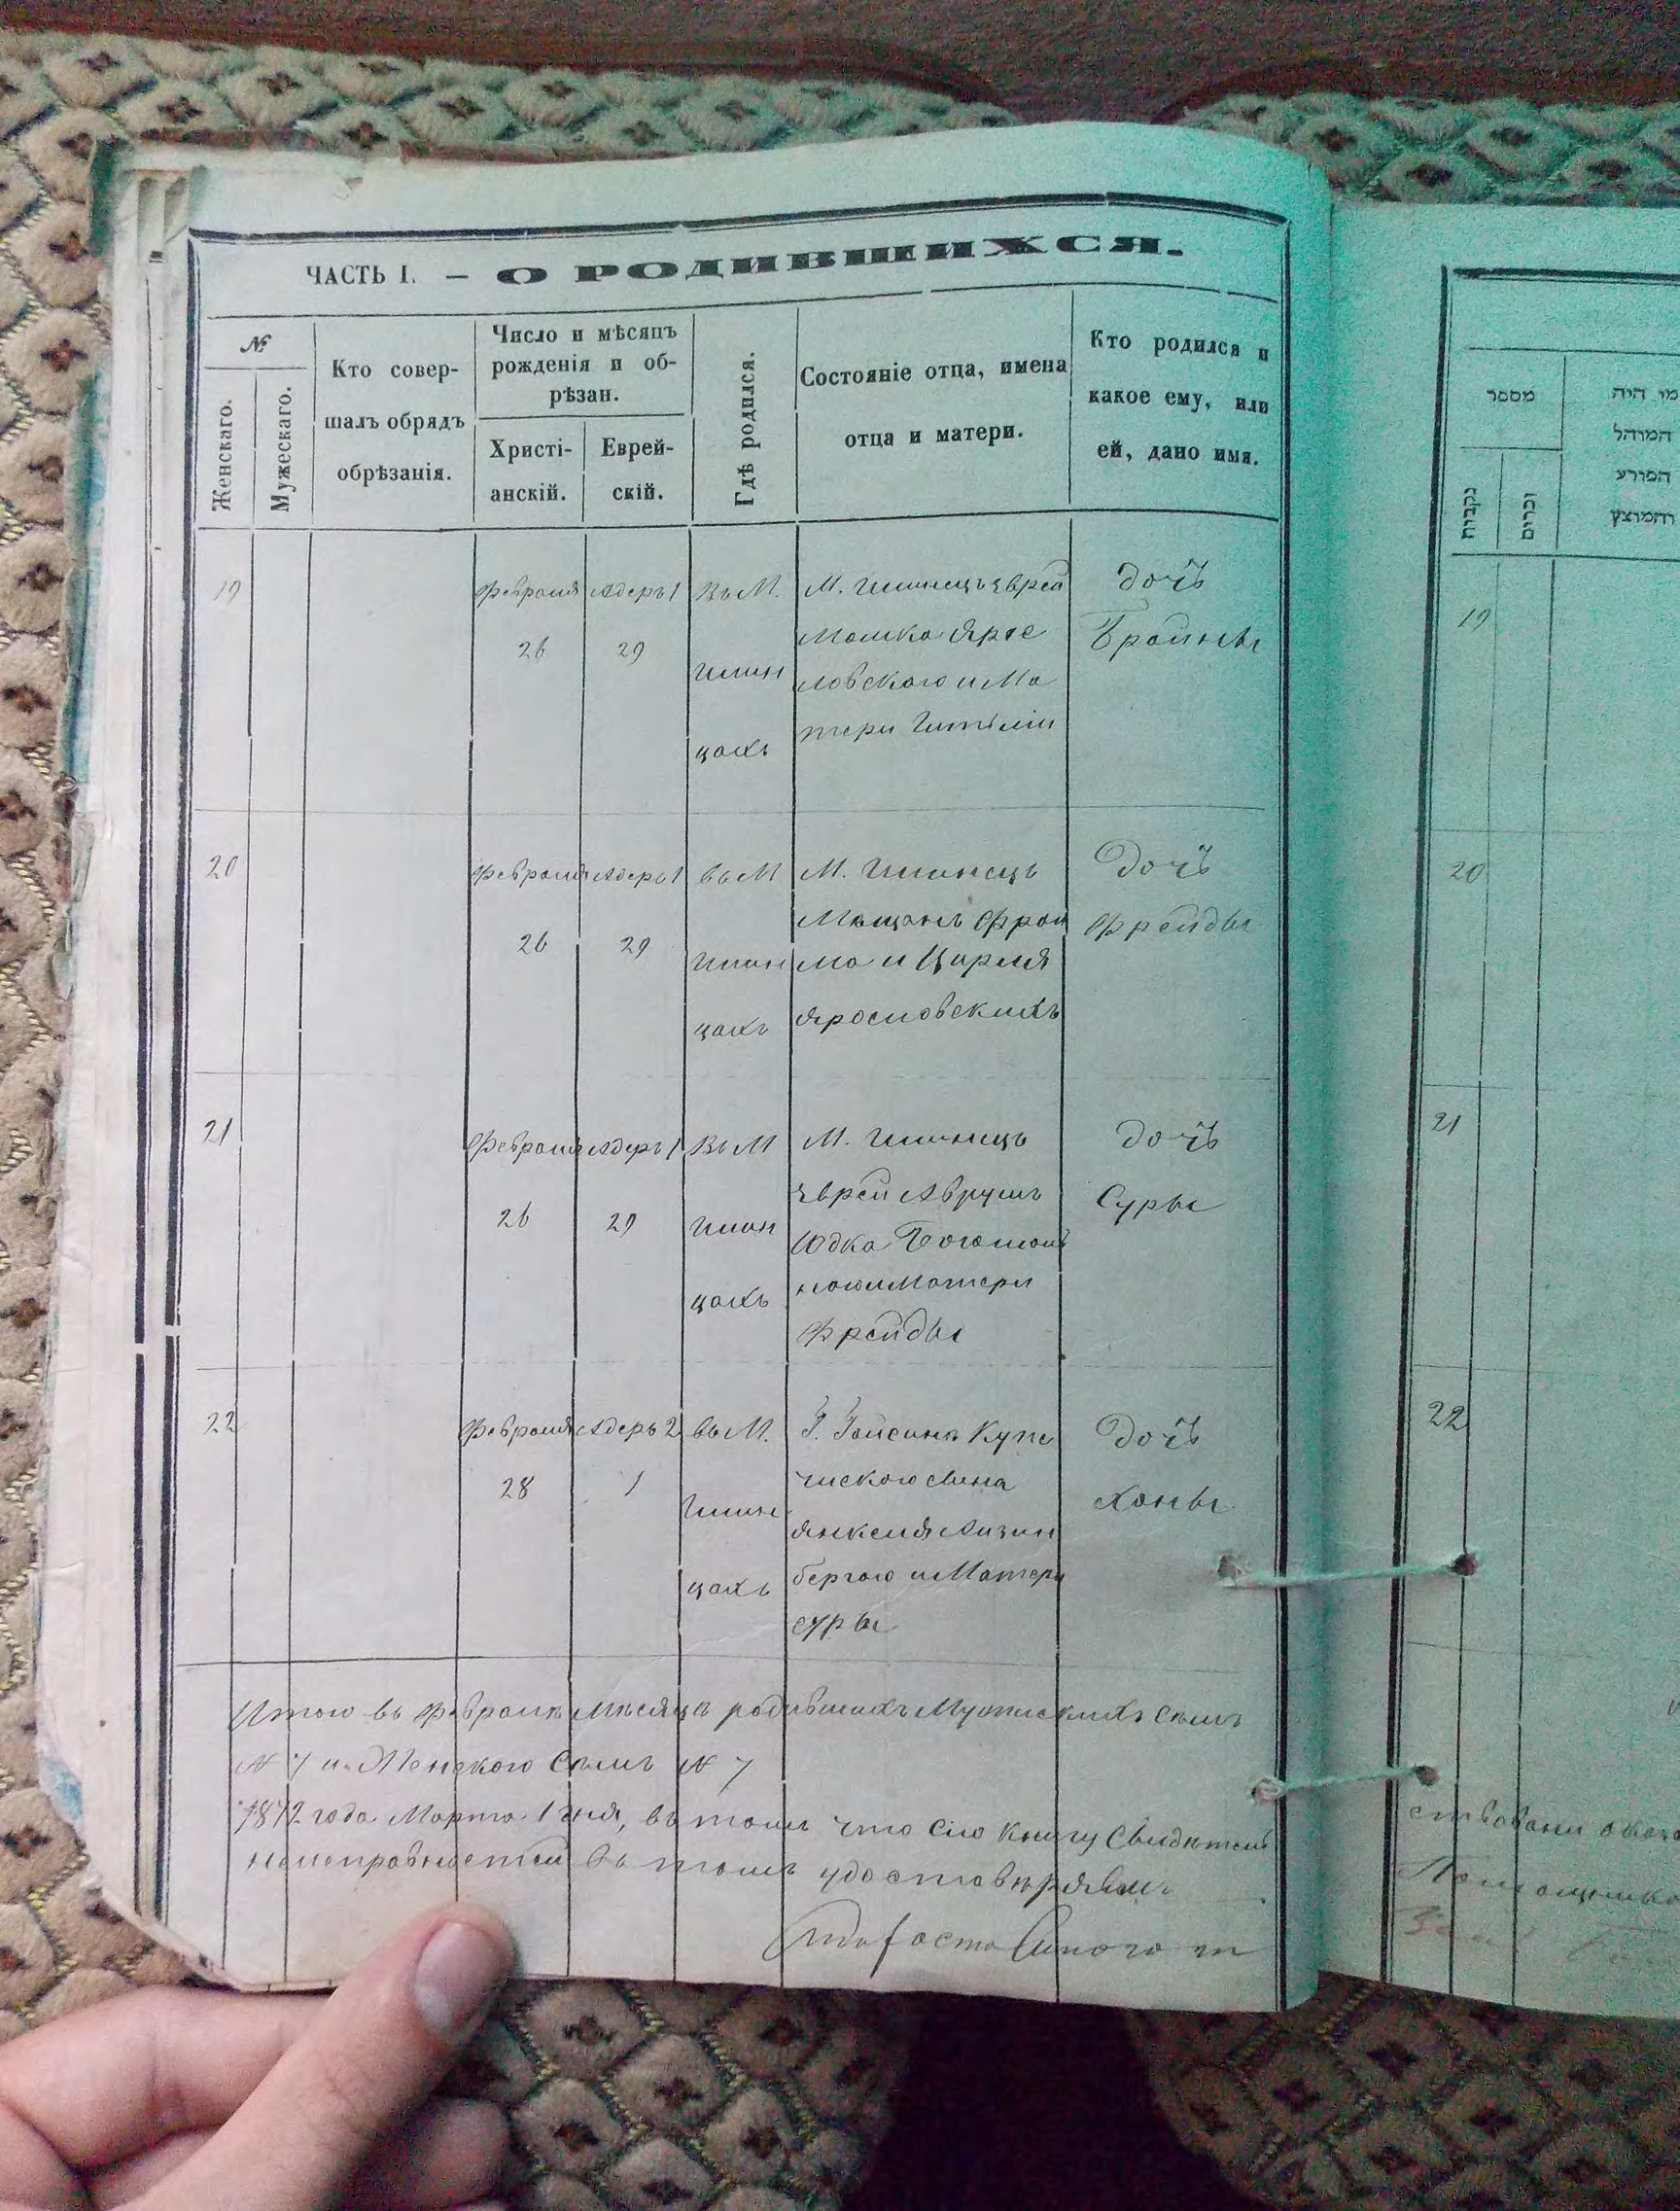 ЧАСТЬ I. — О РОДИВШИХСЯ.
№
Женскаго.
Мужескаго.
Кто совер-
шалъ обрядъ
обрѣзанія.
Число и мѣсяцъ
рожденія и об-
рѣзан.
Христі-
анскій.
Еврей-
скій.
Гдѣ родился.
Состояніе отца, имена
отца и матери.
Кто родился и
какое ему, или
ей, дано имя.
19
Февраля
26
Адеръ 1
29
Въ М.
Илин
цахъ
М. Илинецъ Еврей
Мошка Ярос
ловского и Ма
тери
дочь
Браины
20
Февраля
26
Адеръ 1
29
въ М
Илин
цахъ
М. Илинецъ
Мѣщанъ Фрои
ма и Цирля
Ярословскихъ
Дочь
Фрейды
21
Февраля
26
Адеръ 1
29
Въ М
Илин
цахъ
М. Илинецъ
Еврей Аврумъ
Юдка
Матери
Фрейды
дочь
Суры
22
Февраля
28
Адеръ 2
1
въ М.
Илин
цахъ
Г. Гайсина Купе
ческого сына
Янкеля Аизин
бергаю и Матери
суры
Дочь
Ханы
Итого въ Феврале Мѣсяцѣ родившихъ Мужескихъ Сѣмъ
№ 7 и Женского Сѣмъ № 7
1872 года Марта 1 дня, въ томъ что сію книгу
въ томъ удостовѣряемъ
מספר
נקבות
זכרים
מי היה
המוהל
הפורע
והמוצץ
19
20
21
22